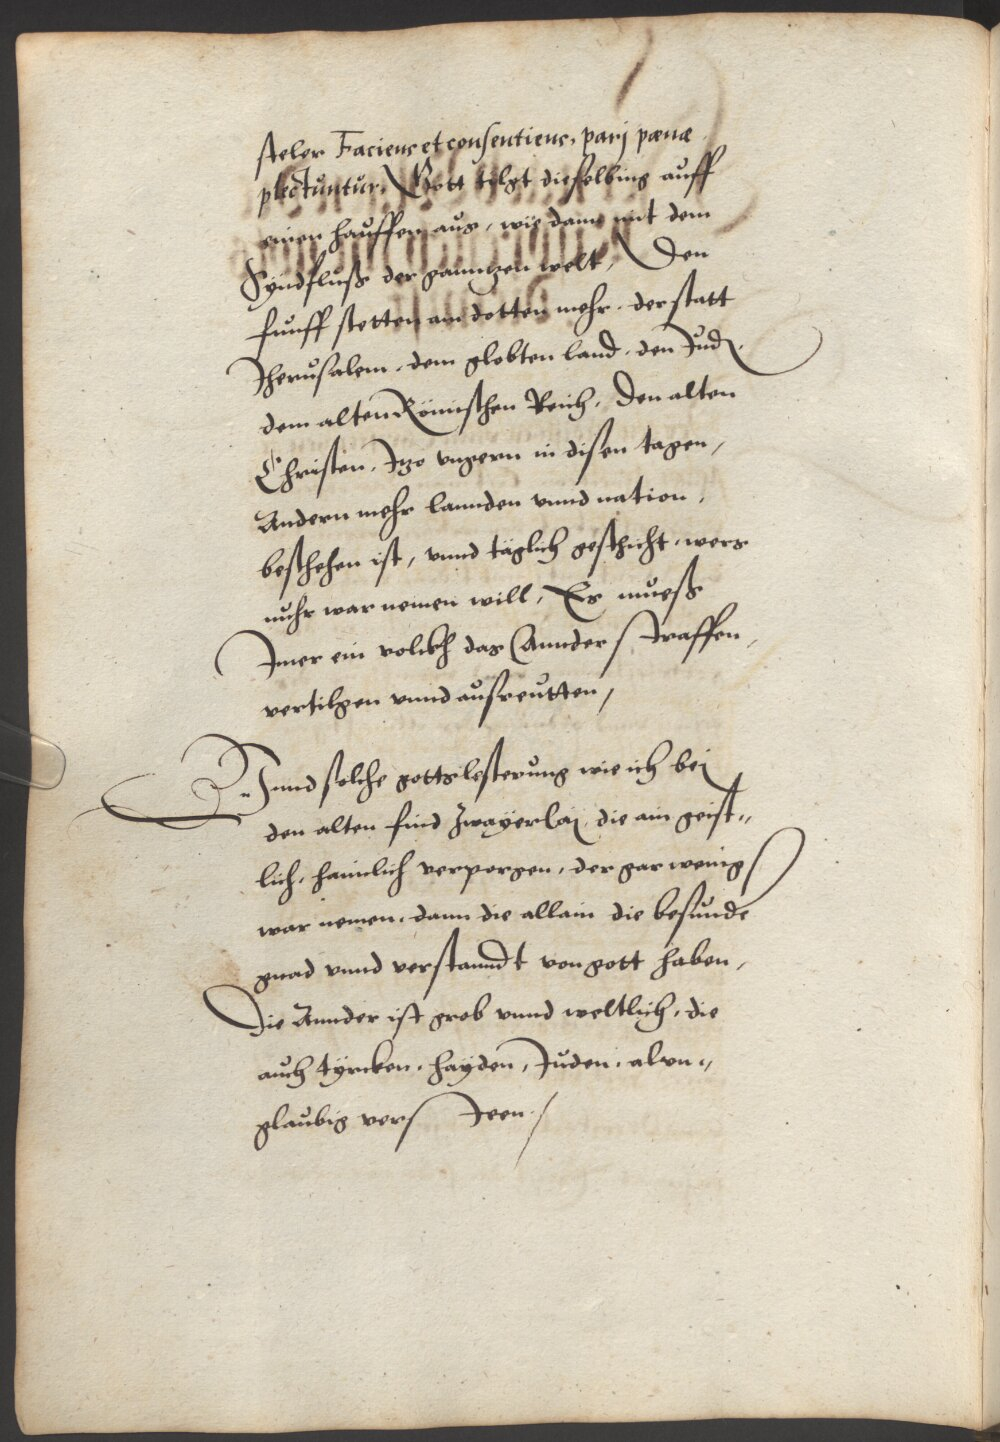 steler Faciens et consentiens, parj pœna
plectuntur. Gott tilgt dieselbing auff
einen hauffen aus, wie dann mit dem
Syndfluß der ganntzen welt, Den
funff stetten am dotten mehr. der statt
Jherusalem. dem globten land. den Jud.
dem alten Römischen Reich. Den alten
Christen. Jtzo vngern in disen tagen,
Andern mehr lannden vnnd nation.
beschehen ist, vnnd täglich geschicht. wers
nuhr war nemen will, Es mueß
Jmer ein volckh das Annder straffen,
vertilgen vnnd ausreutten,
Vnnd solche gottslesterung wie ich bej
den alten find zwayerlaj, die ain geist-
lich. haimlich verporgen. der gar wenig
war nemen. dann die allain die besunde
gnad vnnd verstanndt von gott haben,
Die Annder ist grob vnnd weltlich. die
auch tyrcken. hayden, Juden. al vn-
glaubig versteen.